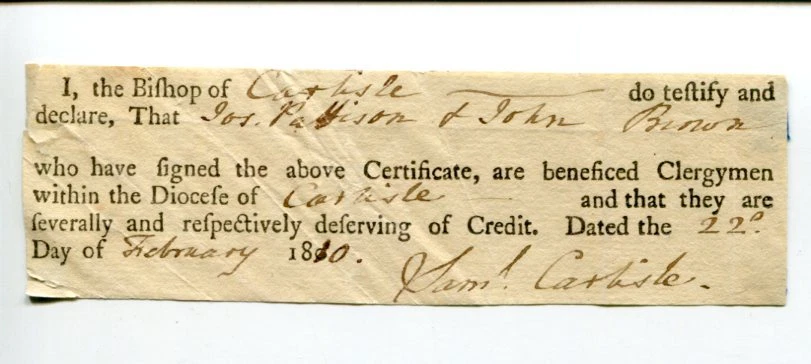 I, the Biſhop of Carlisle do teſtify and
declare, That Jos. Pattison & John Brown
who have ſigned the above Certificate, are beneficed Clergymen
within the Dioceſe of Carlisle and that they are
ſeverally and reſpectively deſerving of Credit. Dated the 22d.
Day of February 1810.
Saml. Carlisle.